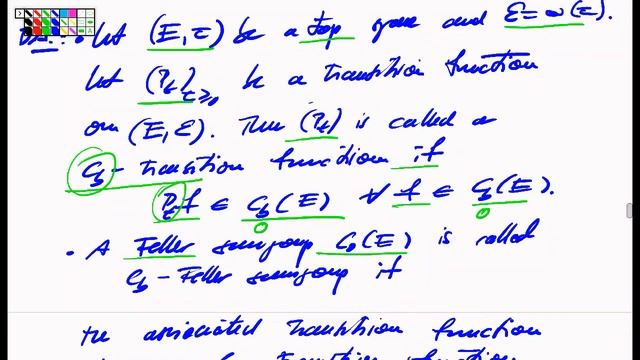 Def.: • Let (E, τ) be a top space and ℰ = σ(τ).
Let (P_t)_{t≥0} be a transition function
on (E, ℰ). Then (P_t) is called a
C_b - transition function if
P_t f ∈ C_b(E) ∀ f ∈ C_b(E).
• A Feller semigroup C_0(E) is called
C_b - Feller semigroup if
the associated transition function
transition function